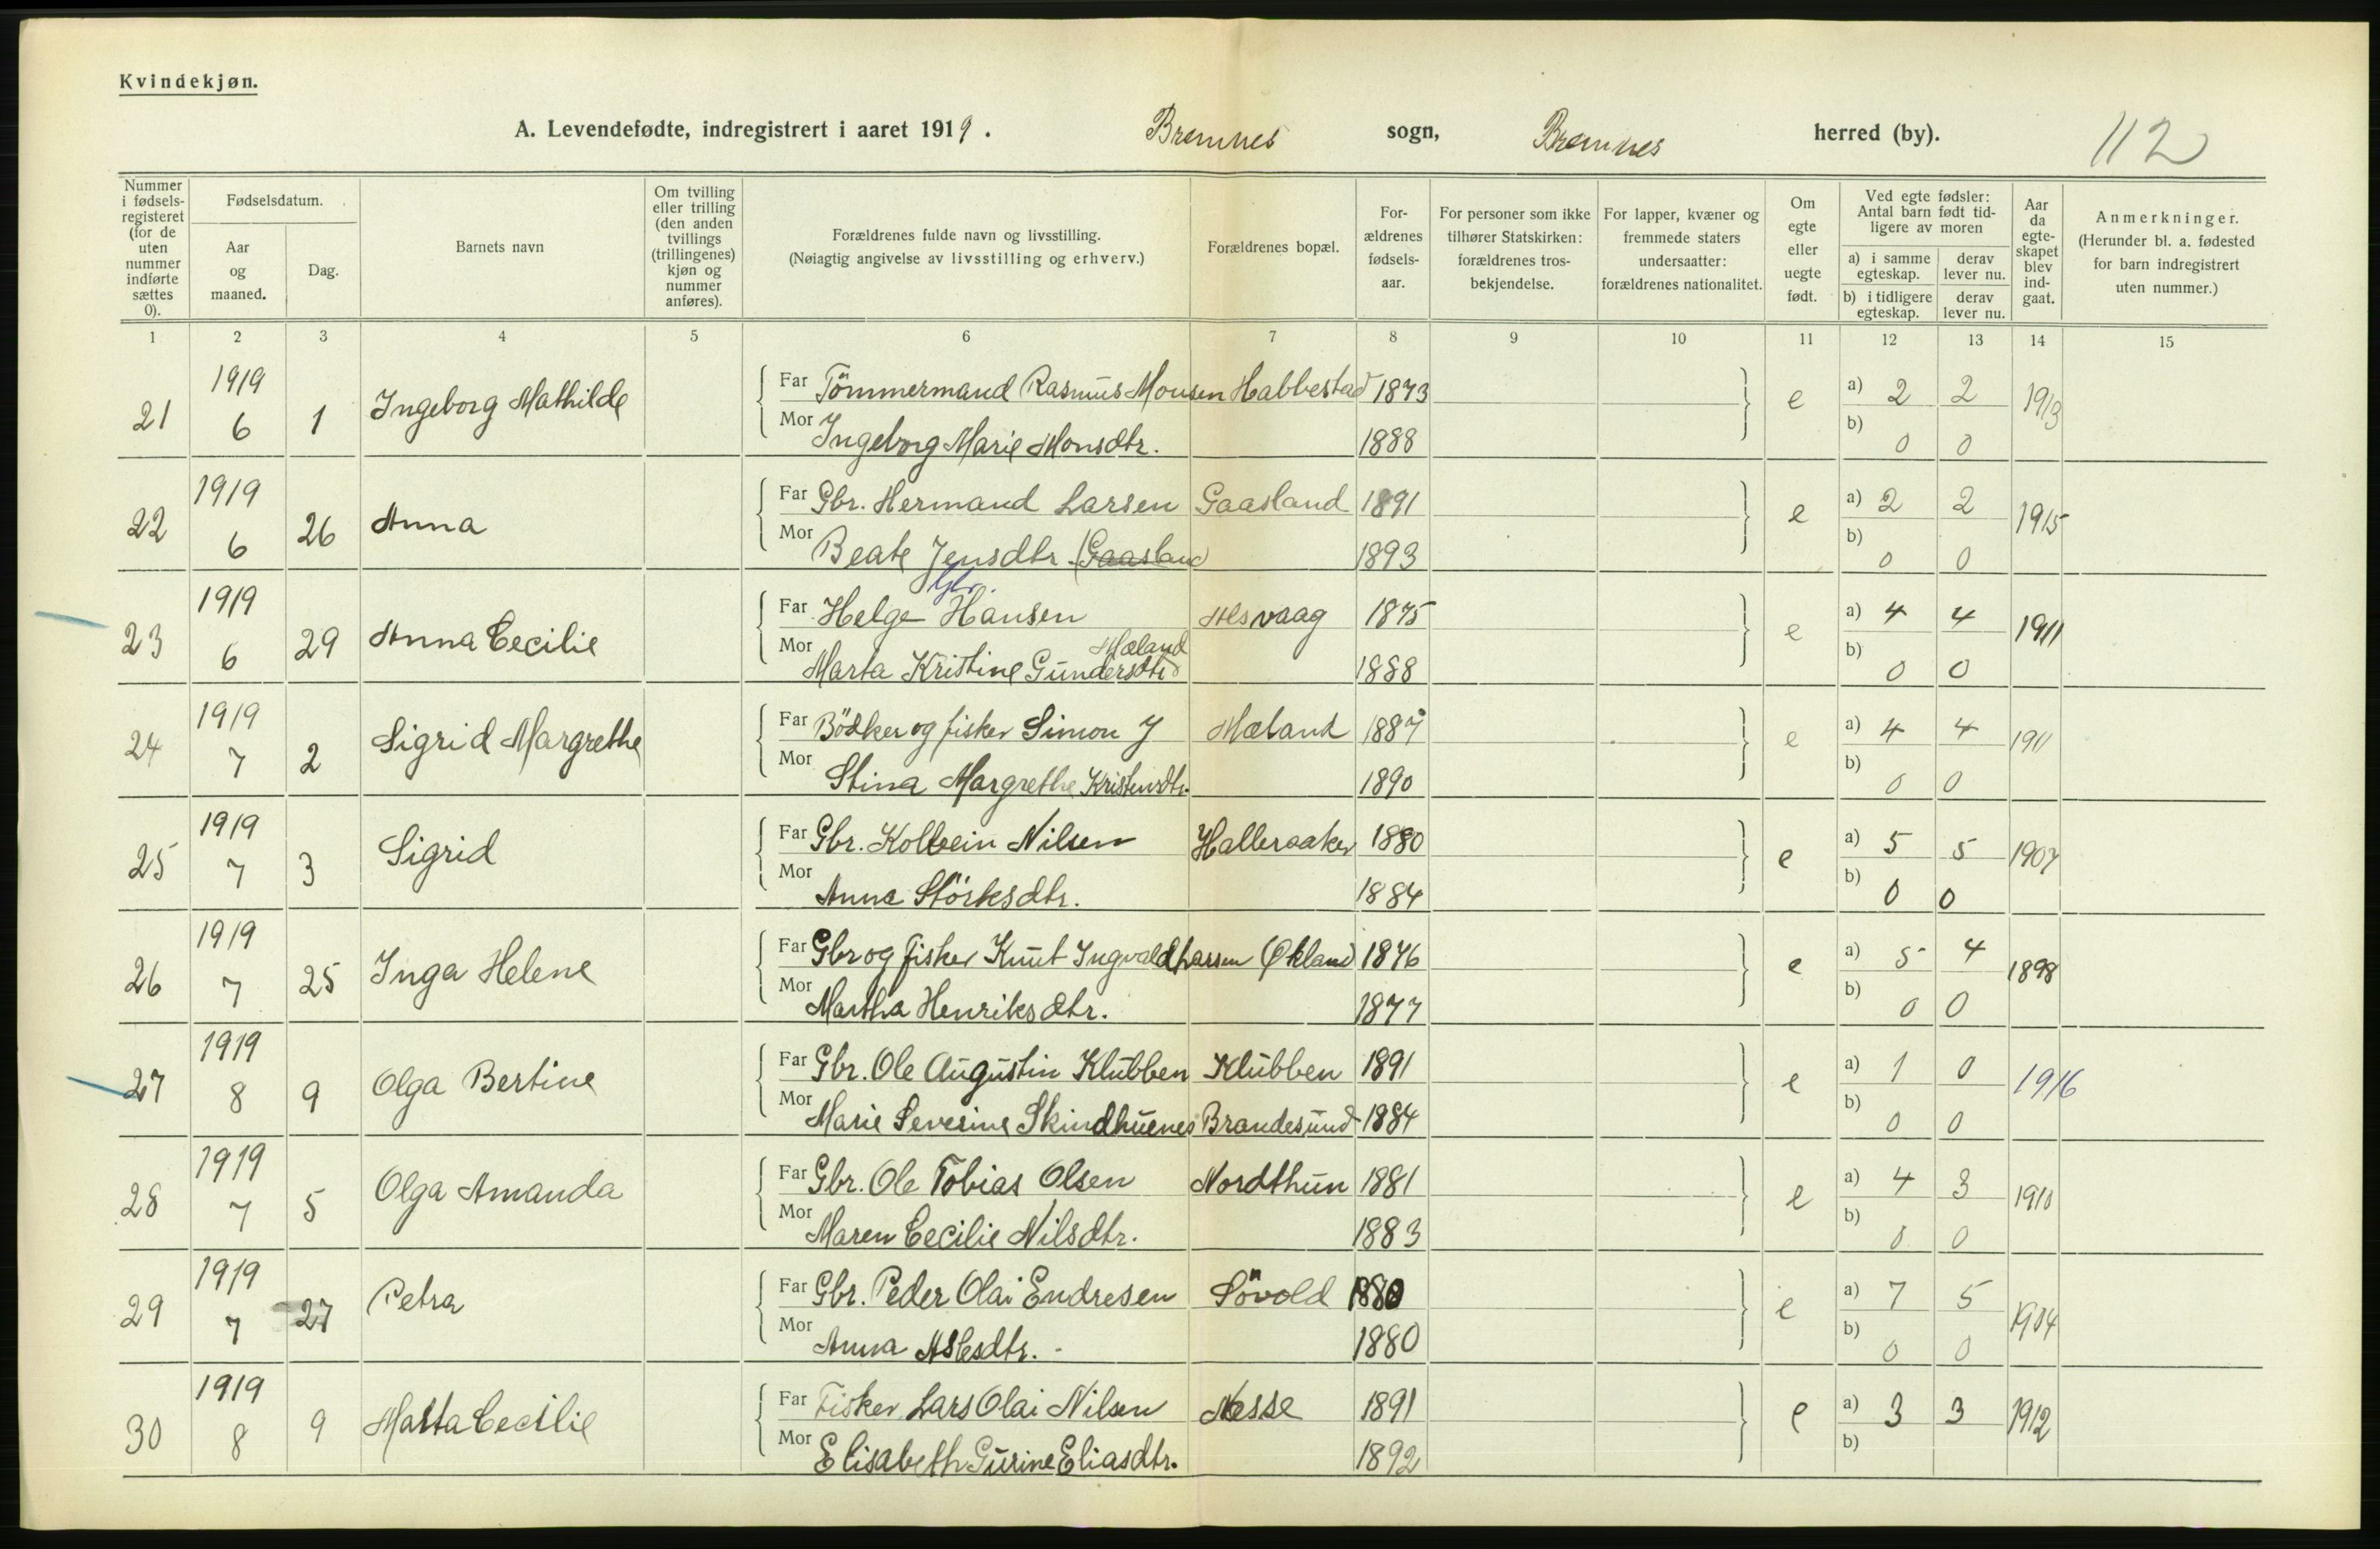 Kvindekjøn.
A. Levendefødte, indregistrert i aaret 1919. Bremnes sogn, Bremnes herred (by). 112
Nummer i fødsels-registeret (for de uten nummer indførte sættes 0).
Fødselsdatum.
Aar og maaned.
Dag.
Barnets navn
Om tvilling eller trilling (den anden tvillings (trillingenes) kjøn og nummer anføres).
Forældrenes fulde navn og livsstilling.
(Nøiagtig angivelse av livsstilling og erhverv.)
Forældrenes bopæl.
For-ældrenes fødsels-aar.
For personer som ikke tilhører Statskirken: forældrenes tros-bekjendelse.
For lapper, kvæner og fremmede staters undersaatter: forældrenes nationalitet.
Om egte eller uegte født.
Ved egte fødsler: Antal barn født tid-ligere av moren
a) i samme egteskap. derav lever nu.
b) i tidligere egteskap. derav lever nu.
Aar da egte-skapet blev ind-gaat.
Anmerkninger.
(Herunder bl. a. fødested for barn indregistrert uten nummer.)
1 2 3 4 5 6 7 8 9 10 11 12 13 14 15
21 1919 6 1 Ingeborg Mathilde Far Tömmermand Rasmus Monsen Habbestad 1873 e a) 2 2 1913
Mor Ingeborg Marie Monsdtr. 1888 b) 0 0
22 1919 6 26 Anna Far Gbr. Hermand Larsen Gaasland 1891 e a) 2 2 1915
Mor Beate Jensdtr. (Gaasland) 1893 b) 0 0
23 1919 6 29 Anna Cecilie Far Helge Gbr. Hansen Alsvaag 1875 e a) 4 4 1911
Mor Marta Kristine Gundersdtr Mæland 1888 b) 0 0
24 1919 7 2 Sigrid Margrethe Far Bödker og fisker Simon J Mæland 1887 e a) 4 4 1911
Mor Stina Margrethe Kristensdtr. 1890 b) 0 0
25 1919 7 3 Sigrid Far Gbr. Kolbein Nilsen Halleraaker 1880 e a) 5 5 1907
Mor Anna Störksdtr. 1884 b) 0 0
26 1919 7 25 Inga Helene Far Gbr og fisker Knut Ingvald Larssen Økland 1876 e a) 5 4 1898
Mor Martha Henriksdtr. 1877 b) 0 0
27 1919 8 9 Olga Bertine Far Gbr. Ole Augustin Klubben Klubben 1891 e a) 1 0 1916
Mor Marie Severine Skindhuenes Brandesund 1884 b) 0 0
28 1919 7 5 Olga Amanda Far Gbr. Ole Tobias Olsen Nordthun 1881 e a) 4 3 1910
Mor Maren Cecilie Nilsdtr. 1883 b) 0 0
29 1919 7 27 Petra Far Gbr. Peder Olai Endresen Sövold 1880 e a) 7 5 1904
Mor Anna Aslesdtr. 1880 b) 0 0
30 1919 8 9 Marta Cecilie Far Fisker Lars Olai Nilsen Nesse 1891 e a) 3 3 1912
Mor Elisabeth Gurine Eliasdtr. 1892 b)